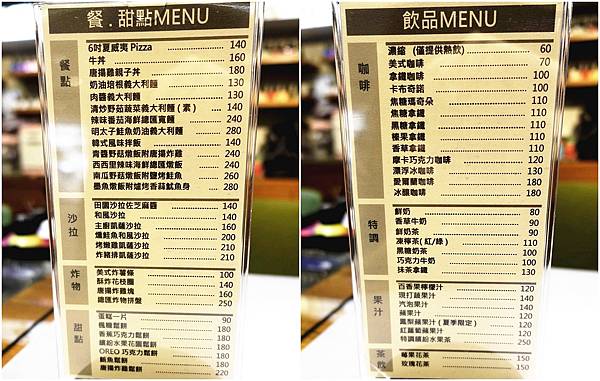 餐.甜點MENU
餐點
6吋夏威夷 Pizza 140
牛丼 160
唐揚雞親子丼 180
奶油培根義大利麵 130
肉醬義大利麵 130
清炒野菇蔬菜義大利麵(素) 140
辣味番茄海鮮總匯寬麵 240
明太子鮭魚奶油義大利麵 280
韓式風味拌飯 140
青醬野菇燉飯附唐揚炸雞 240
西西里辣味海鮮總匯燉飯 240
南瓜野菇燉飯附鹽烤鮭魚 260
墨魚燉飯附爐烤香蒜魷魚身 280
沙拉
田園沙拉佐芝麻醬 140
和風沙拉 140
主廚凱薩沙拉 160
燻鮭魚和風沙拉 200
烤嫩雞凱薩沙拉 210
炸豬排凱薩沙拉 210
炸物
美式炸薯條 100
酥炸花枝圈 140
唐揚炸雞塊 160
總匯炸物拼盤 250
甜點
蛋糕一片 90
楓糖鬆餅 180
香蕉巧克力鬆餅 180
繽紛水果花園鬆餅 180
OREO 巧克力鬆餅 180
鮪魚鬆餅 180
唐揚炸雞鬆餅 220
飲品MENU
咖啡
濃縮 (僅提供熱飲) 60
美式咖啡 70
拿鐵咖啡 100
卡布奇諾 100
焦糖瑪奇朵 110
焦糖拿鐵 110
黑糖拿鐵 110
榛果拿鐵 110
香草拿鐵 110
摩卡巧克力咖啡 120
漂浮冰咖啡 130
愛爾蘭咖啡 180
冰釀咖啡 180
特調
鮮奶 80
香草牛奶 90
鮮奶茶 90
凍檸茶(紅/綠) 110
黑糖奶茶 100
巧克力牛奶 100
抹茶拿鐵 110
果汁
百香果檸檬汁 120
現打蔬果汁 120
汽泡果汁 120
蘋果汁 120
鳳梨蘋果汁(夏季限定) 120
紅蘿蔔蘋果汁 120
特調繽紛水果茶 250
茶飲
莓果花茶 150
玫瑰花茶 150